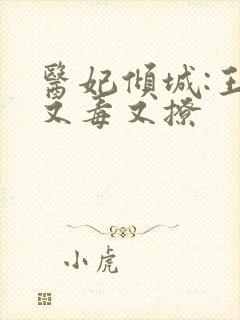 醫妃傾城:王
又毒又撩
小虎